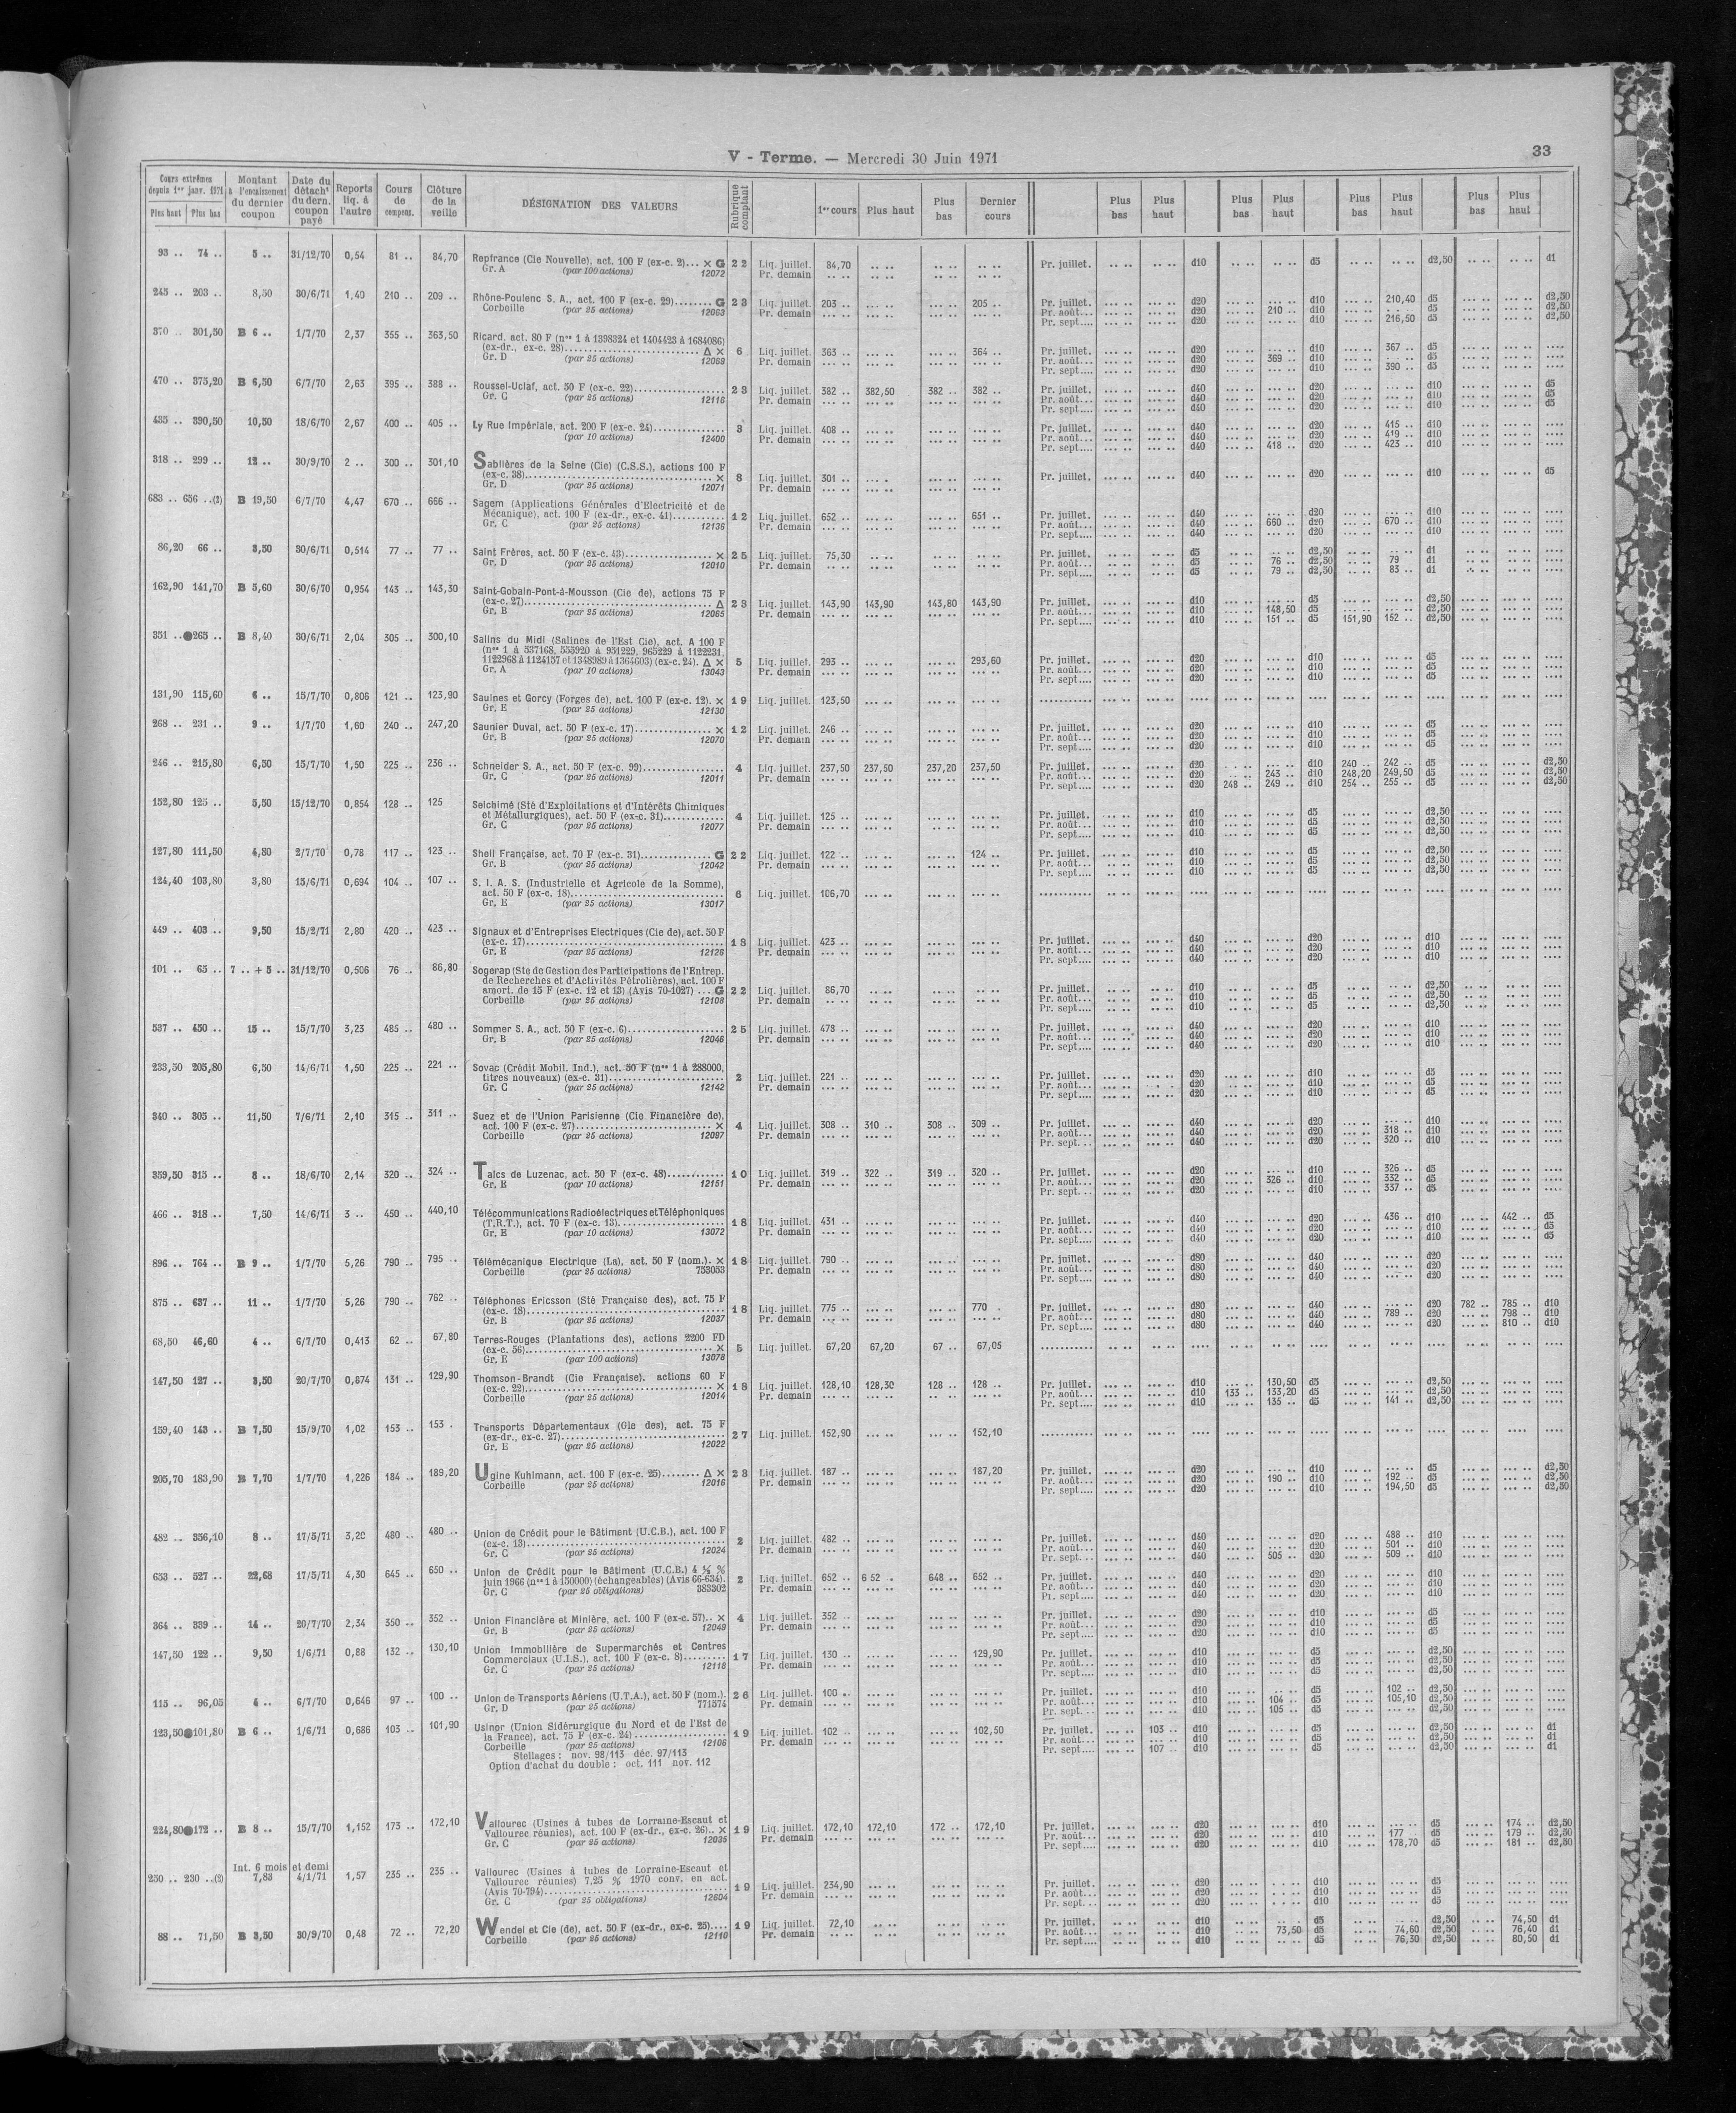 V - Terme. — Mercredi 30 Juin 1971
33
Cours extrêmes depuis 1er janv. 1971 | Montant à l'encaissement du dernier coupon | Date du détacht du dern. coupon payé | Reports liq. à l'autre | Cours de compens. | Clôture de la veille | DÉSIGNATION DES VALEURS | Rubrique comptant | 1er cours | Plus haut | Plus bas | Dernier cours | Plus bas | Plus haut | Plus bas | Plus haut | Plus bas | Plus haut | Plus bas | Plus haut
Plus haut | Plus bas
93 .. 74 .. 5 .. 31/12/70 0,54 81 .. 84,70 Repfrance (Cie Nouvelle), act. 100 F (ex-c. 2)... × G 22 Liq. juillet. 84,70 Pr. juillet. d10 d5 d2,50 d1
Gr. A (par 100 actions) 12072 Pr. demain
245 .. 203 .. 8,50 30/6/71 1,40 210 .. 209 .. Rhône-Poulenc S. A., act. 100 F (ex-c. 29)........ G 23 Liq. juillet. 203 .. 205 .. Pr. juillet. d20 d10 210,40 d5 d2,50
Corbeille (par 25 actions) 12063 Pr. demain Pr. août... d20 210 .. d10 d5 d2,50
Pr. sept.... d20 d10 216,50 d5 d2,50
370 .. 301,50 B 6 .. 1/7/70 2,37 355 .. 363,50 Ricard, act. 80 F (nos 1 à 1398324 et 1404423 à 1684086)
(ex-dr., ex-c. 28)........ Δ × 6 Liq. juillet. 363 .. 364 .. Pr. juillet. d20 d10 367 .. d5
Gr. D (par 25 actions) 12069 Pr. demain Pr. août... d20 369 .. d10 d5
Pr. sept.... d20 d10 390 .. d5
470 .. 375,20 B 6,50 6/7/70 2,63 395 .. 388 .. Roussel-Uclaf, act. 50 F (ex-c. 22)........ 23 Liq. juillet. 382 .. 382,50 382 .. 382 .. Pr. juillet. d40 d20 d10 d5
Gr. C (par 25 actions) 12116 Pr. demain Pr. août... d40 d20 d10 d5
Pr. sept.... d40 d20 d10 d5
435 .. 390,50 10,50 18/6/70 2,67 400 .. 405 .. Ly Rue Impériale, act. 200 F (ex-c. 24)........ 3 Liq. juillet. 408 .. Pr. juillet. d40 d20 415 .. d10
(par 10 actions) 12400 Pr. demain Pr. août... d40 d20 419 .. d10
Pr. sept.... d40 418 .. d20 423 .. d10
318 .. 299 .. 12 .. 30/9/70 2 .. 300 .. 301,10 Sablières de la Seine (Cie) (C.S.S.), actions 100 F
(ex-c. 38)........ × 8 Liq. juillet. 301 .. Pr. juillet. d40 d20 d10 d5
Gr. D (par 25 actions) 12071 Pr. demain
683 .. 636 ..(2) B 19,50 6/7/70 4,47 670 .. 666 .. Sagem (Applications Générales d'Electricité et de
Mécanique), act. 100 F (ex-dr., ex-c. 41)........ 12 Liq. juillet. 652 .. 651 .. Pr. juillet. d40 d20 d10
Gr. C (par 25 actions) 12136 Pr. demain Pr. août... d40 660 .. d20 670 .. d10
Pr. sept.... d40 d20 d10
86,20 66 .. 3,50 30/6/71 0,514 77 .. 77 .. Saint Frères, act. 50 F (ex-c. 43)........ × 25 Liq. juillet. 75,30 Pr. juillet. d5 d2,50 d1
Gr. D (par 25 actions) 12010 Pr. demain Pr. août... d5 76 .. d2,50 79 d1
Pr. sept.... d5 79 .. d2,50 83 .. d1
162,90 141,70 B 5,60 30/6/71 0,954 143 .. 143,30 Saint-Gobain-Pont-à-Mousson (Cie de), actions 75 F
(ex-c. 27)........ Δ 23 Liq. juillet. 143,90 143,90 143,80 143,90 Pr. juillet. d10 d5 d2,50
Gr. B (par 25 actions) 12065 Pr. demain Pr. août... d10 148,50 d5 d2,50
Pr. sept.... d10 151 .. d5 151,90 152 .. d2,50
351 ..●265 .. B 8,40 30/6/71 2,04 305 .. 300,10 Salins du Midi (Salines de l'Est Cie), act. A 100 F
(nos 1 à 537168, 555920 à 951229, 965229 à 1122231,
1122968 à 1124157 et 1348989 à 1364603) (ex-c. 24). Δ × 5 Liq. juillet. 293 .. 293,60 Pr. juillet. d20 d10 d5
Gr. A (par 10 actions) 13043 Pr. demain Pr. août... d20 d10 d5
Pr. sept.... d20 d10 d5
131,90 115,60 6 .. 15/7/70 0,806 121 .. 123,90 Saulnes et Gorcy (Forges de), act. 100 F (ex-c. 12). × 19 Liq. juillet. 123,50
Gr. E (par 25 actions) 12130
268 .. 231 .. 9 .. 1/7/70 1,60 240 .. 247,20 Saunier Duval, act. 50 F (ex-c. 17)........ × 12 Liq. juillet. 246 .. Pr. juillet. d20 d10 d5
Gr. B (par 25 actions) 12070 Pr. demain Pr. août... d20 d10 d5
Pr. sept.... d20 d10 d5
246 .. 215,80 6,50 15/7/70 1,50 225 .. 236 .. Schneider S. A., act. 50 F (ex-c. 99)........ 4 Liq. juillet. 237,50 237,50 237,20 237,50 Pr. juillet. d20 d10 240 .. 242 .. d5 d2,50
Gr. C (par 25 actions) 12011 Pr. demain Pr. août... d20 243 .. d10 248,20 249,50 d5 d2,50
Pr. sept.... d20 248 .. 249 .. d10 254 .. 255 .. d5 d2,50
152,80 125 .. 5,50 15/12/70 0,854 128 .. 125 Selchimé (Sté d'Exploitations et d'Intérêts Chimiques
et Métallurgiques), act. 50 F (ex-c. 31)........ 4 Liq. juillet. 125 .. Pr. juillet. d10 d5 d2,50
Gr. C (par 25 actions) 12077 Pr. demain Pr. août... d10 d5 d2,50
Pr. sept.... d10 d5 d2,50
127,80 111,50 4,80 2/7/70 0,78 117 .. 123 .. Shell Française, act. 70 F (ex-c. 31)........ G 22 Liq. juillet. 122 .. 124 .. Pr. juillet. d10 d5 d2,50
Gr. B (par 25 actions) 12042 Pr. demain Pr. août... d10 d5 d2,50
Pr. sept.... d10 d5 d2,50
124,40 103,80 3,80 15/6/71 0,694 104 .. 107 .. S. I. A. S. (Industrielle et Agricole de la Somme),
act. 50 F (ex-c. 18)........ 6 Liq. juillet. 106,70
Gr. E (par 25 actions) 13017
449 .. 403 .. 9,50 15/2/71 2,80 420 .. 423 .. Signaux et d'Entreprises Electriques (Cie de), act. 50 F
(ex-c. 17)........ 18 Liq. juillet. 423 .. Pr. juillet. d40 d20 d10
Gr. E (par 25 actions) 12126 Pr. demain Pr. août... d40 d20 d10
Pr. sept.... d40 d20 d10
101 .. 65 .. 7 .. + 5 .. 31/12/70 0,506 76 .. 86,80 Sogerap (Sté de Gestion des Participations de l'Entrep.
de Recherches et d'Activités Pétrolières), act. 100 F
amort. de 15 F (ex-c. 12 et 13) (Avis 70-1027) ... G 22 Liq. juillet. 86,70 Pr. juillet. d10 d5 d2,50
Corbeille (par 25 actions) 12108 Pr. demain Pr. août... d10 d5 d2,50
Pr. sept.... d10 d5 d2,50
537 .. 450 .. 15 .. 15/7/70 3,23 485 .. 480 .. Sommer S. A., act. 50 F (ex-c. 6)........ 25 Liq. juillet. 478 .. Pr. juillet. d40 d20 d10
Gr. B (par 25 actions) 12046 Pr. demain Pr. août... d40 d20 d10
Pr. sept.... d40 d20 d10
233,50 205,80 6,50 14/6/71 1,50 225 .. 221 .. Sovac (Crédit Mobil. Ind.), act. 50 F (nos 1 à 288000,
titres nouveaux) (ex-c. 31)........ 2 Liq. juillet. 221 .. Pr. juillet. d20 d10 d5
Gr. C (par 25 actions) 12142 Pr. demain Pr. août... d20 d10 d5
Pr. sept.... d20 d10 d5
340 .. 305 .. 11,50 7/6/71 2,10 315 .. 311 .. Suez et de l'Union Parisienne (Cie Financière de),
act. 100 F (ex-c. 27)........ × 4 Liq. juillet. 308 .. 310 .. 308 .. 309 .. Pr. juillet. d40 d20 d10
Corbeille (par 25 actions) 12097 Pr. demain Pr. août... d40 d20 318 .. d10
Pr. sept... d40 d20 320 .. d10
359,50 315 .. 8 .. 18/6/70 2,14 320 .. 324 .. Talcs de Luzenac, act. 50 F (ex-c. 48)........ 10 Liq. juillet. 319 .. 322 .. 319 .. 320 .. Pr. juillet. d20 d10 326 .. d5
Gr. E (par 10 actions) 12151 Pr. demain Pr. août... d20 326 .. d10 332 .. d5
Pr. sept... d20 d10 337 .. d5
466 .. 318 .. 7,50 14/6/71 3 .. 450 .. 440,10 Télécommunications Radioélectriques et Téléphoniques
(T.R.T.), act. 70 F (ex-c. 13)........ 18 Liq. juillet. 431 .. Pr. juillet. d40 d20 436 .. d10 442 .. d5
Gr. E (par 10 actions) 13072 Pr. demain Pr. août... d40 d20 d10 d5
Pr. sept.... d40 d20 d10 d5
896 .. 764 .. B 9 .. 1/7/70 5,26 790 .. 795 .. Télémécanique Electrique (La), act. 50 F (nom.). × 18 Liq. juillet. 790 .. Pr. juillet. d80 d40 d20
Corbeille (par 25 actions) 753053 Pr. demain Pr. août... d80 d40 d20
Pr. sept.... d80 d40 d20
875 .. 637 .. 11 .. 1/7/70 5,26 790 .. 762 .. Téléphones Ericsson (Sté Française des), act. 75 F
(ex-c. 18)........ 18 Liq. juillet. 775 .. 770 . Pr. juillet. d80 d40 d20 782 .. 785 .. d10
Gr. B (par 25 actions) 12037 Pr. demain Pr. août... d80 d40 789 .. d20 798 .. d10
Pr. sept.... d80 d40 d20 810 .. d10
68,50 46,60 4 .. 6/7/70 0,413 62 .. 67,80 Terres-Rouges (Plantations des), actions 2200 FD
(ex-c. 56)........ × 5 Liq. juillet. 67,20 67,20 67 .. 67,05
Gr. E (par 100 actions) 13078
147,50 127 .. 3,50 20/7/70 0,874 131 .. 129,90 Thomson-Brandt (Cie Française), actions 60 F
(ex-c. 22)........ × 18 Liq. juillet. 128,10 128,30 128 .. 128 .. Pr. juillet. d10 130,50 d5 d2,50
Corbeille (par 25 actions) 12014 Pr. demain Pr. août... d10 133 .. 133,20 d5 d2,50
Pr. sept.... d10 135 .. d5 141 .. d2,50
159,40 143 .. B 7,50 15/9/70 1,02 153 .. 153 . Transports Départementaux (Gle des), act. 75 F
(ex-dr., ex-c. 27)........ 27 Liq. juillet. 152,90 152,10
Gr. E (par 25 actions) 12022
205,70 183,90 B 7,70 1/7/70 1,226 184 .. 189,20 Ugine Kuhlmann, act. 100 F (ex-c. 25)........ Δ × 23 Liq. juillet. 187 .. 187,20 Pr. juillet. d20 d10 d5 d2,50
Corbeille (par 25 actions) 12016 Pr. demain Pr. août... d20 190 .. d10 192 .. d5 d2,50
Pr. sept.... d20 d10 194,50 d5 d2,50
482 .. 356,10 8 .. 17/5/71 3,20 480 .. 480 .. Union de Crédit pour le Bâtiment (U.C.B.), act. 100 F
(ex-c. 13)........ 2 Liq. juillet. 482 .. Pr. juillet. d40 d20 488 .. d10
Gr. C (par 25 actions) 12024 Pr. demain Pr. août... d40 d20 501 .. d10
Pr. sept... d40 505 .. d20 509 .. d10
653 .. 527 .. 22,68 17/5/71 4,30 645 .. 650 .. Union de Crédit pour le Bâtiment (U.C.B.) 4 ½ %
juin 1966 (nos 1 à 150000) (échangeables) (Avis 66-634). 2 Liq. juillet. 652 .. 652 . 648 .. 652 .. Pr. juillet. d40 d20 d10
Gr. C (par 25 obligations) 383302 Pr. demain Pr. août... d40 d20 d10
Pr. sept.... d40 d20 d10
364 .. 339 .. 14 .. 20/7/70 2,34 350 .. 352 .. Union Financière et Minière, act. 100 F (ex-c. 57).. × 4 Liq. juillet. 352 .. Pr. juillet. d20 d10 d5
Gr. B (par 25 actions) 12049 Pr. demain Pr. août... d20 d10 d5
Pr. sept.... d20 d10 d5
147,50 122 .. 9,50 1/6/71 0,88 132 .. 130,10 Union Immobilière de Supermarchés et Centres
Commerciaux (U.I.S.), act. 100 F (ex-c. 8)........ 17 Liq. juillet. 130 .. 129,90 Pr. juillet. d10 d5 d2,50
Gr. C (par 25 actions) 12118 Pr. demain Pr. août... d10 d5 d2,50
Pr. sept.... d10 d5 d2,50
115 .. 96,05 4 .. 6/7/70 0,646 97 .. 100 .. Union de Transports Aériens (U.T.A.), act. 50 F (nom.). 26 Liq. juillet. 100 .. Pr. juillet. d10 d5 102 .. d2,50
Gr. D (par 25 actions) 771574 Pr. demain Pr. août... d10 104 .. d5 105,10 d2,50
Pr. sept... d10 105 .. d5 d2,50
123,50●101,80 B 6 .. 1/6/71 0,686 103 .. 101,90 Usinor (Union Sidérurgique du Nord et de l'Est de
la France), act. 75 F (ex-c. 24)........ 19 Liq. juillet. 102 .. 102,50 Pr. juillet. 103 .. d10 d5 d2,50 d1
Corbeille (par 25 actions) 12106 Pr. demain Pr. août... d10 d5 d2,50 d1
Stellages : nov. 98/113 déc. 97/113 Pr. sept.... 107 .. d10 d5 d2,50 d1
Option d'achat du double : oct. 111 nov. 112
224,80●172 .. B 8 .. 15/7/70 1,152 173 .. 172,10 Vallourec (Usines à tubes de Lorraine-Escaut et
Vallourec réunies), act. 100 F (ex-dr., ex-c. 26).. × 19 Liq. juillet. 172,10 172,10 172 .. 172,10 Pr. juillet. d20 d10 d5 174 .. d2,50
Gr. C (par 25 actions) 12035 Pr. demain Pr. août... d20 d10 177 .. d5 179 .. d2,50
Pr. sept.... d20 d10 178,70 d5 181 .. d2,50
Int. 6 mois et demi
250 .. 230 ..(2) 7,83 4/1/71 1,57 235 .. 235 .. Vallourec (Usines à tubes de Lorraine-Escaut et
Vallourec réunies) 7,25 % 1970 conv. en act.
(Avis 70-794)........ 19 Liq. juillet. 234,90 Pr. juillet. d20 d10 d5
Gr. C (par 25 obligations) 12604 Pr. demain Pr. août... d20 d10 d5
Pr. sept... d20 d10 d5
88 .. 71,50 B 3,50 30/9/70 0,48 72 .. 72,20 Wendel et Cie (de), act. 50 F (ex-dr., ex-c. 25).... 19 Liq. juillet. 72,10 Pr. juillet. d10 d5 d2,50 74,50 d1
Corbeille (par 25 actions) 12110 Pr. demain Pr. août... d10 73,50 d5 74,60 d2,50 76,40 d1
Pr. sept.... d10 d5 76,30 d2,50 80,50 d1